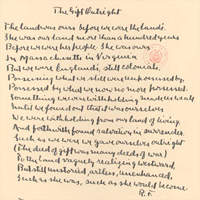 The Gift Outright
The land was ours before we were the land's.
She was our land more than a hundred years
Before we were her people. She was ours
In Massachusetts in Virginia
But we were England's, still colonials,
Possessing what we still were unpossessed by,
Possessed by what we now no more possessed.
Something we were withholding made us weak
Until we found out that it was ourselves
We were withholding from our land of living
And forthwith found salvation in surrender.
Such as we were we gave ourselves outright
(The deed of gift was many deeds of war)
To the land vaguely realizing westward
But still unstoried artless, unenhanced,
Such as she was, such as she would become
R.F.